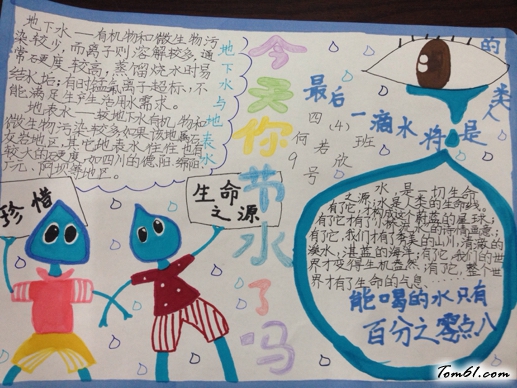 地下水——有机物和微生物污
染较少,而离子则溶解较多,通
常硬度较高,蒸馏烧水时易
结水垢;有时锰氟离子超标,不
能满足生产生活用水需求。
地表水——较地下水有机物和
微生物污染较多,如果该地属石
灰岩地区,其它地表水往往也有
较大的硬度,如四川的德阳、绵阳、
广元、阿坝等地区。
地下水与地表水
今天你节水了吗
最后一滴水将是
人类的
四(4)班
何若欣
9号
珍惜
生命
之源
水,是一切生命
之源;水是人类的生命线。
有了它,才构成这个蔚蓝的星球;
有了它,我们才有秀美的山川,清澈的
溪水,湛蓝的海洋;有了它,我们的世
界才变得生机盎然;有了它,整个世
界才有了生命的气息……
能喝的水只有
百分之零点八
Tom61.com